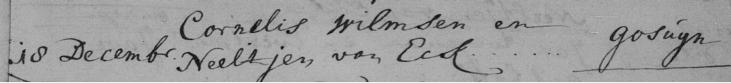 Cornelis Wilmsen en
18 Decembr. Neeltjen van Eck ....... gosuyn